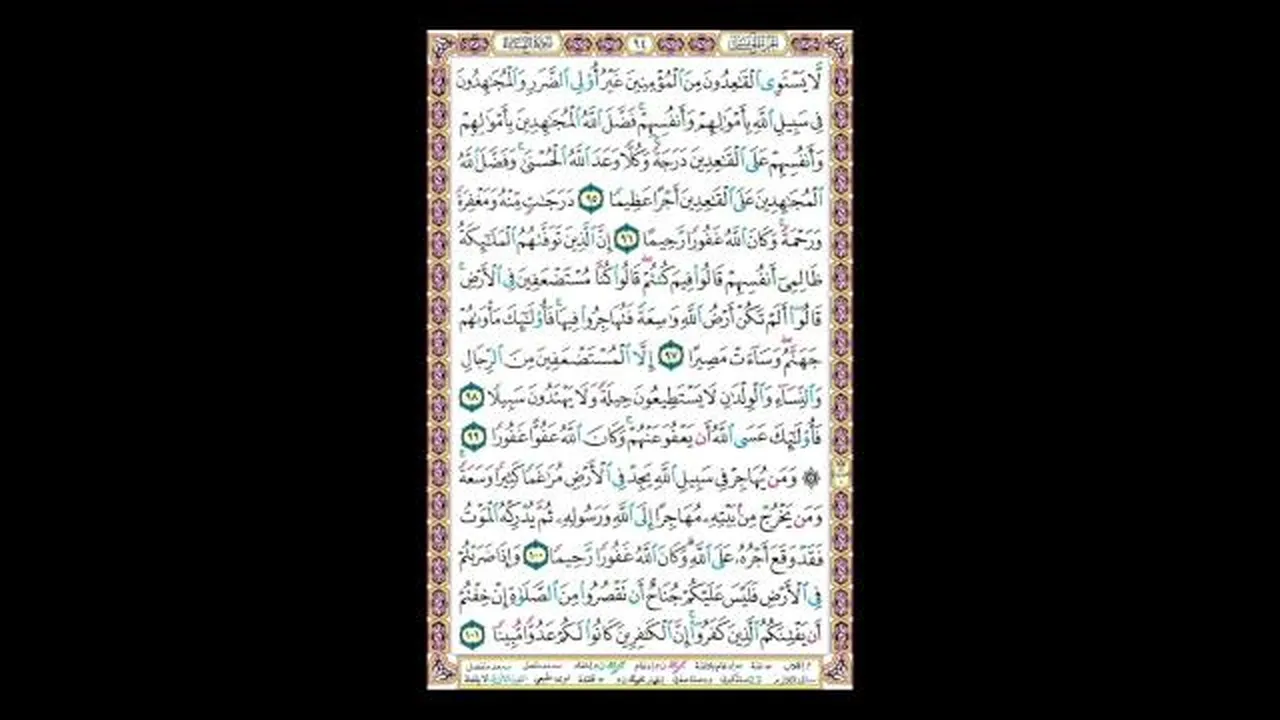 سورة النساء ٩٤ الجزء الخامس
لَّا يَسْتَوِى ٱلْقَـٰعِدُونَ مِنَ ٱلْمُؤْمِنِينَ غَيْرُ أُو۟لِى ٱلضَّرَرِ وَٱلْمُجَـٰهِدُونَ
فِى سَبِيلِ ٱللَّهِ بِأَمْوَٰلِهِمْ وَأَنفُسِهِمْ ۚ فَضَّلَ ٱللَّهُ ٱلْمُجَـٰهِدِينَ بِأَمْوَٰلِهِمْ
وَأَنفُسِهِمْ عَلَى ٱلْقَـٰعِدِينَ دَرَجَةً ۚ وَكُلًّا وَعَدَ ٱللَّهُ ٱلْحُسْنَىٰ ۚ وَفَضَّلَ ٱللَّهُ
ٱلْمُجَـٰهِدِينَ عَلَى ٱلْقَـٰعِدِينَ أَجْرًا عَظِيمًا ٩٥ دَرَجَـٰتٍ مِّنْهُ وَمَغْفِرَةً
وَرَحْمَةً ۚ وَكَانَ ٱللَّهُ غَفُورًا رَّحِيمًا ٩٦ إِنَّ ٱلَّذِينَ تَوَفَّىٰهُمُ ٱلْمَلَـٰٓئِكَةُ
ظَالِمِىٓ أَنفُسِهِمْ قَالُوا۟ فِيمَ كُنتُمْ ۖ قَالُوا۟ كُنَّا مُسْتَضْعَفِينَ فِى ٱلْأَرْضِ ۚ
قَالُوٓا۟ أَلَمْ تَكُنْ أَرْضُ ٱللَّهِ وَٰسِعَةً فَتُهَاجِرُوا۟ فِيهَا ۚ فَأُو۟لَـٰٓئِكَ مَأْوَىٰهُمْ
جَهَنَّمُ ۖ وَسَآءَتْ مَصِيرًا ٩٧ إِلَّا ٱلْمُسْتَضْعَفِينَ مِنَ ٱلرِّجَالِ
وَٱلنِّسَآءِ وَٱلْوِلْدَٰنِ لَا يَسْتَطِيعُونَ حِيلَةً وَلَا يَهْتَدُونَ سَبِيلًا ٩٨
فَأُو۟لَـٰٓئِكَ عَسَى ٱللَّهُ أَن يَعْفُوَ عَنْهُمْ ۚ وَكَانَ ٱللَّهُ عَفُوًّا غَفُورًا ٩٩
۞ وَمَن يُهَاجِرْ فِى سَبِيلِ ٱللَّهِ يَجِدْ فِى ٱلْأَرْضِ مُرَٰغَمًا كَثِيرًا وَسَعَةً ۚ
وَمَن يَخْرُجْ مِنۢ بَيْتِهِۦ مُهَاجِرًا إِلَى ٱللَّهِ وَرَسُولِهِۦ ثُمَّ يُدْرِكْهُ ٱلْمَوْتُ
فَقَدْ وَقَعَ أَجْرُهُۥ عَلَى ٱللَّهِ ۗ وَكَانَ ٱللَّهُ غَفُورًا رَّحِيمًا ١٠٠ وَإِذَا ضَرَبْتُمْ
فِى ٱلْأَرْضِ فَلَيْسَ عَلَيْكُمْ جُنَاحٌ أَن تَقْصُرُوا۟ مِنَ ٱلصَّلَوٰةِ إِنْ خِفْتُمْ
أَن يَفْتِنَكُمُ ٱلَّذِينَ كَفَرُوٓا۟ ۚ إِنَّ ٱلْكَـٰفِرِينَ كَانُوا۟ لَكُمْ عَدُوًّا مُّبِينًا ١٠١